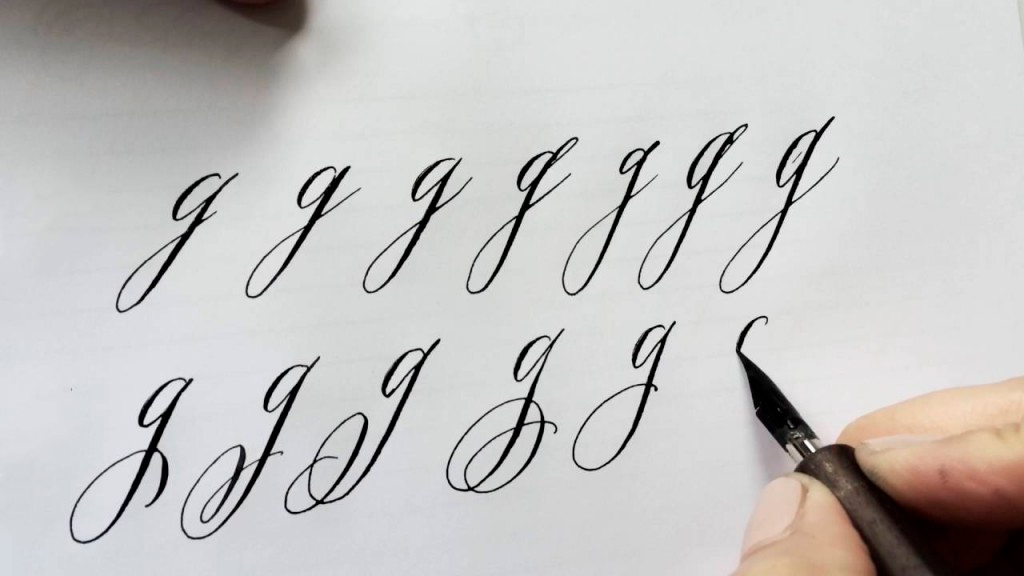 g g g g g g g
g g g g g